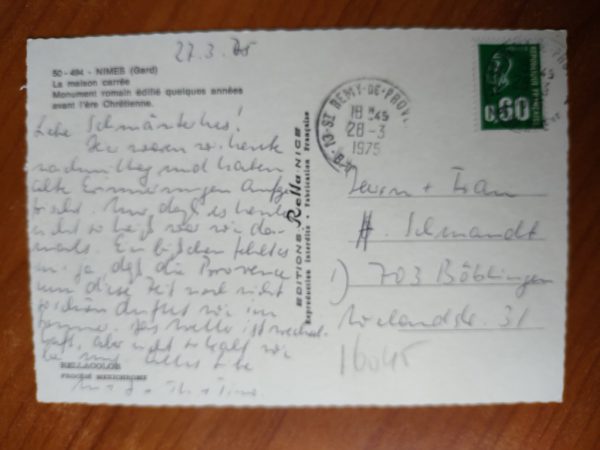 27.3.75
50-494 - NIMES (Gard)
La maison carrée
Monument romain édifié quelques années
avant l'ère Chrétienne.
Liebe Schmändtches!
Hier waren wir heute
nachmittag und haben
alte Erinnerungen aufge-
frischt. Nur daß es heute
nicht so heiß war wie da-
mals. Ein bißchen fehlt es
mir ja, daß die Provence
um diese Zeit noch nicht
so schön duftet wie im
Sommer. Das Wetter ist wechsel-
haft, aber nicht so kalt wie
bei uns. Alles Liebe
RELLACOLOR
PROCÉDÉ MEXICHROME
EDITIONS Rella-NICE
Reproduction Interdite • Fabrication Française
13-ST REMY-DE-PROV.
18 H 45
28-3
1975
REPUBLIQUE FRANÇAISE
0,60
Herrn + Frau
H. Schmandt
703 Böblingen
Wielandstr. 31
16045